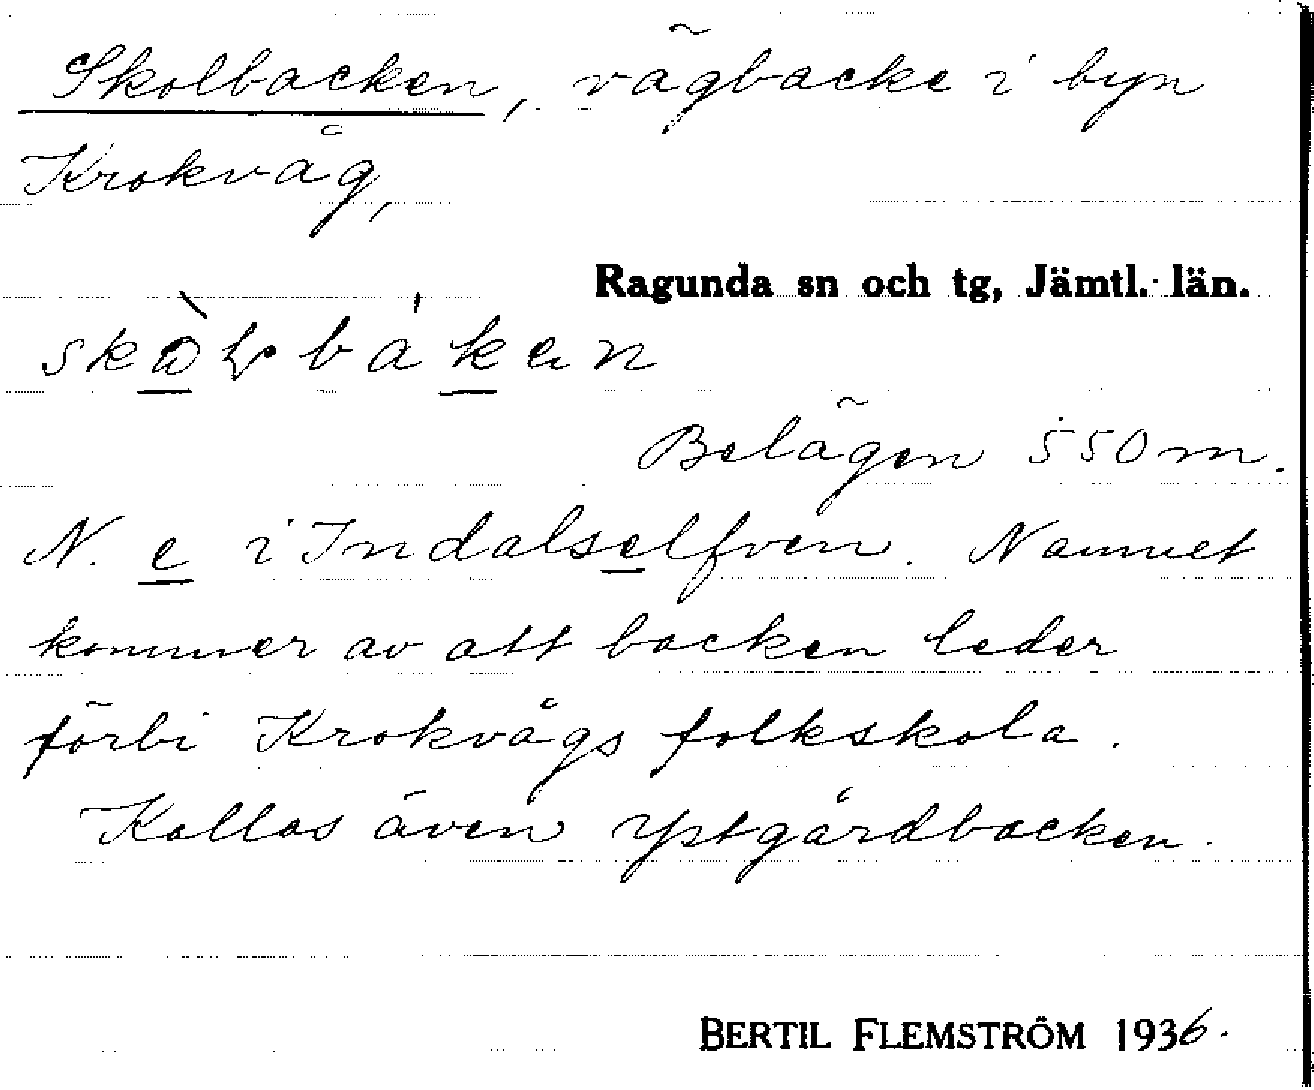 Skolbacken, vägbacke i byn
Krokvåg,
Ragunda sn och tg, Jämtl. län.
Belägen 550 m.
N. e i Indalselfven. Namnet
kommer av att backen leder
förbi Krokvågs folkskola.
Kallas även Ystgårdbacken.
BERTIL FLEMSTRÖM 1936.